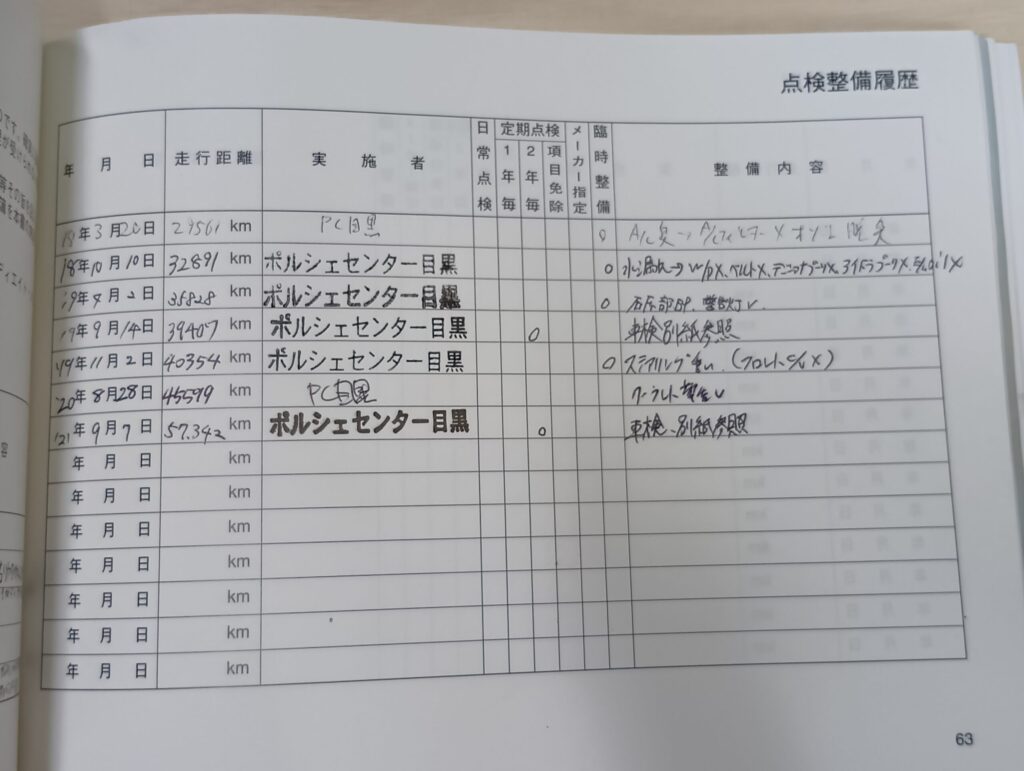 点検整備履歴
年 月 日 走行距離 実施者 日常点検 定期点検 1年毎 2年毎 項目免除 メーカー指定 臨時整備 整備内容
18年3月20日 29561 km PC目黒 ○ A/C 臭
'18年10月10日 32891 km ポルシェセンター目黒 ○ W/P×、ベルト×、テンショナプーリ×、アイドラプーリ×
'19年4月2日 35828 km ポルシェセンター目黒 ○
'19年9月14日 39407 km ポルシェセンター目黒 ○ 車検別紙参照
'19年11月2日 40354 km ポルシェセンター目黒 ○ ステアリング重い (フロント ×)
'20年8月28日 45599 km PC目黒 クーラント警告
'21年9月7日 57.342 km ポルシェセンター目黒 ○ 車検、別紙参照
年 月 日 km
年 月 日 km
年 月 日 km
年 月 日 km
年 月 日 km
年 月 日 km
年 月 日 km
63